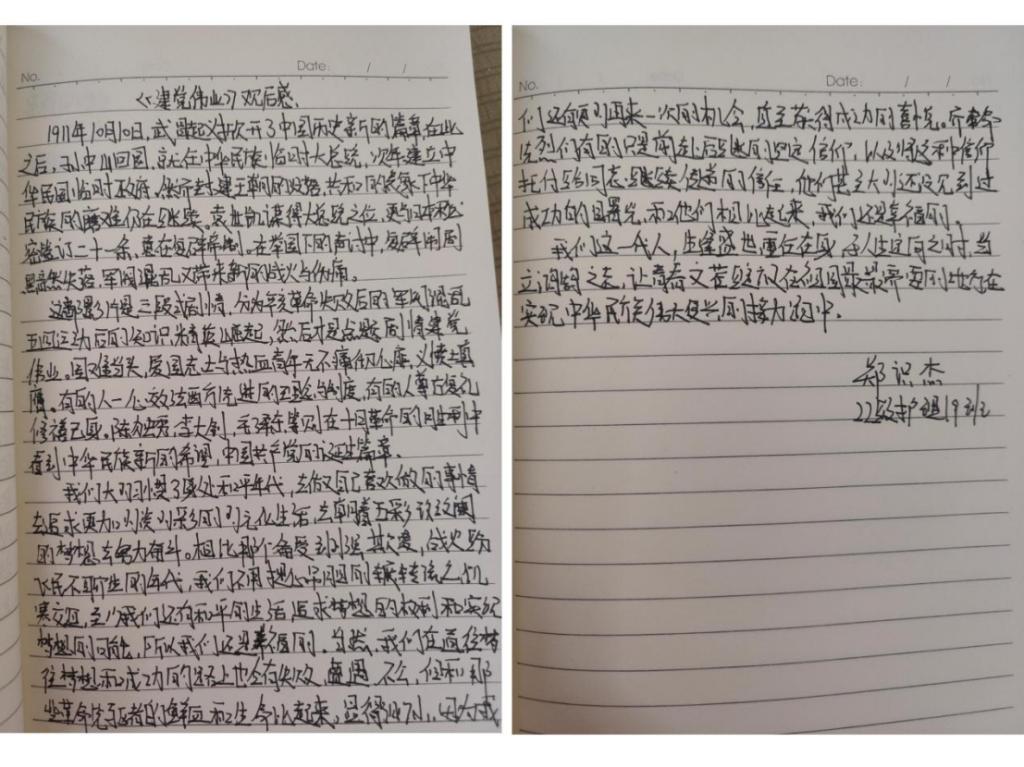 No.
Date: / /
《建党伟业》观后感.
1911年10月10日,武昌起义掀开了中国历史新的篇章在此
之后,孙中山回国,就任中华民族临时大总统,次年建立中
华民国临时政府,然而封建王朝的没落,共和的表象下中华
民族的磨难仍在继续。袁世凯谋得大总统之位,更与日本秘
密签订二十一条,意在复辟帝制。在举国上下的声讨中,复辟闹剧
黯然失落,军阀混乱又带来新的战火与伤痛。
这部影片是三段式剧情,分为辛亥革命失败后的军阀混乱
五四运动后的知识青年崛起,然后才是点题剧情建党
伟业。国难当头,爱国志士与热血青年无不痛彻心扉,义愤填
膺。有的人一心效法西方先进的理论与制度,有的人尊孔复礼
修禧己身。陈独秀,李大钊,毛泽东等则在十月革命的胜利中
看到中华民族新的希望,中国共产党的诞生篇章。
我们大多习惯了身处和平年代,去做自己喜欢做的事情
去追求更加多姿多彩的文化生活,去朝着五彩斑斓
的梦想去努力奋斗。相比那个备受列强欺凌,战火纷
飞民不聊生的年代,我们不用担心吊胆的辗转流之饥
寒交迫,至少我们还有和平的生活,追求梦想的权利和实现
梦想的可能,所以我们还是幸福的。当然,我们在通往梦
往梦想和成功的路上也会有失败,有遇不公,但和那
些革命先驱者的鲜血和生命比起来,显得渺小,因为我
No.
Date: / /
们还有重来一次的机会,直至获得成功的喜悦。而革命
先烈们有的只是前赴后继的坚定信仰,以及将这种信仰
托付给同志继续传递的信任,他们甚至大多还没见到过
成功的曙光,和他们相比起来,我们还是幸福的。
我们这一代人,生逢盛世重任在身,人生迈向之时,当
立鸿鹄之志,让青春之花绽放在祖国最最需要的地方在
实现中华民族伟大复兴的接力跑中.
郑识杰
22级护理19班